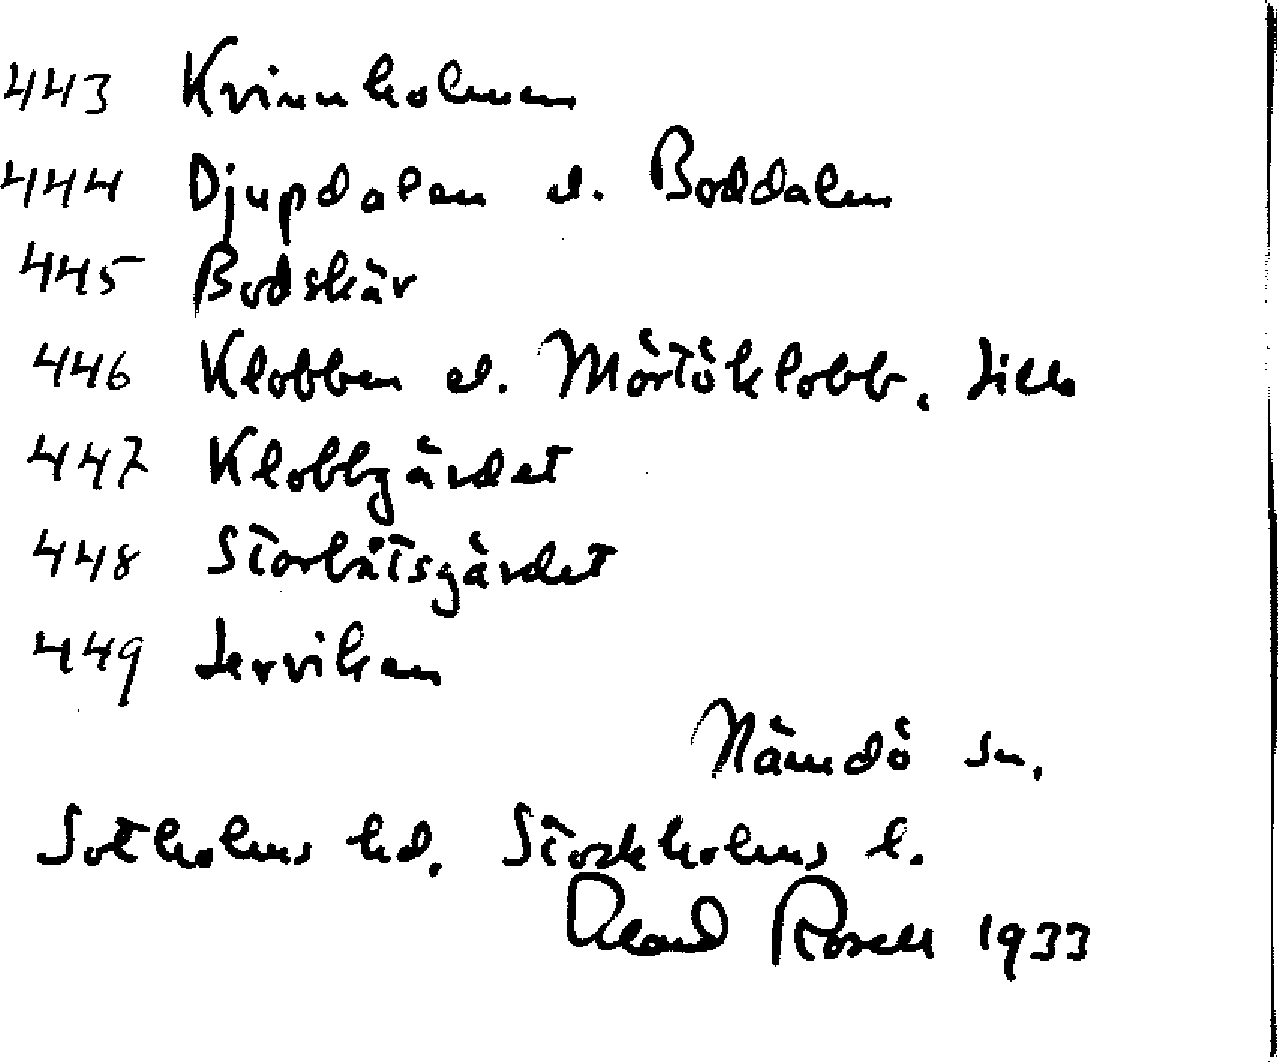 443 Kvinnholmen
444 Djupdalen el. Boddalen
445 Bodskär
446 Klobben el. Mörtöklobb, Lilla
447 Klobbgärdet
448 Storbåtsgärdet
449 Lerviken
Nämdö sn.
Sotholms hd. Stockholms l.
Rosell 1933